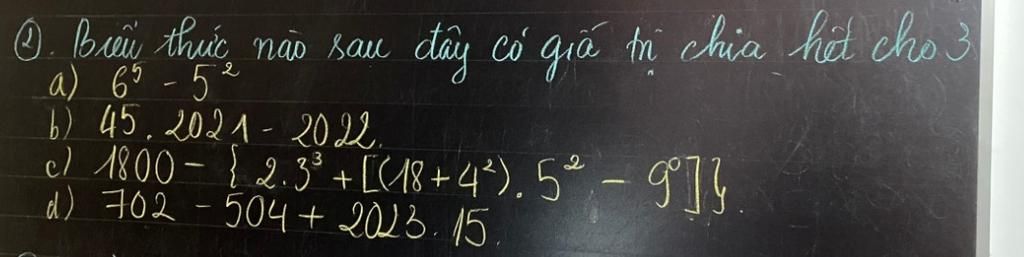 ②. Biểu thức nào sau đây có giá trị chia hết cho 3
a) 6⁵ - 5²
b) 45. 2021 - 2022.
c) 1800 - { 2.3³ + [(18+4²). 5² - 9⁰]}.
d) 702 - 504 + 2023. 15.